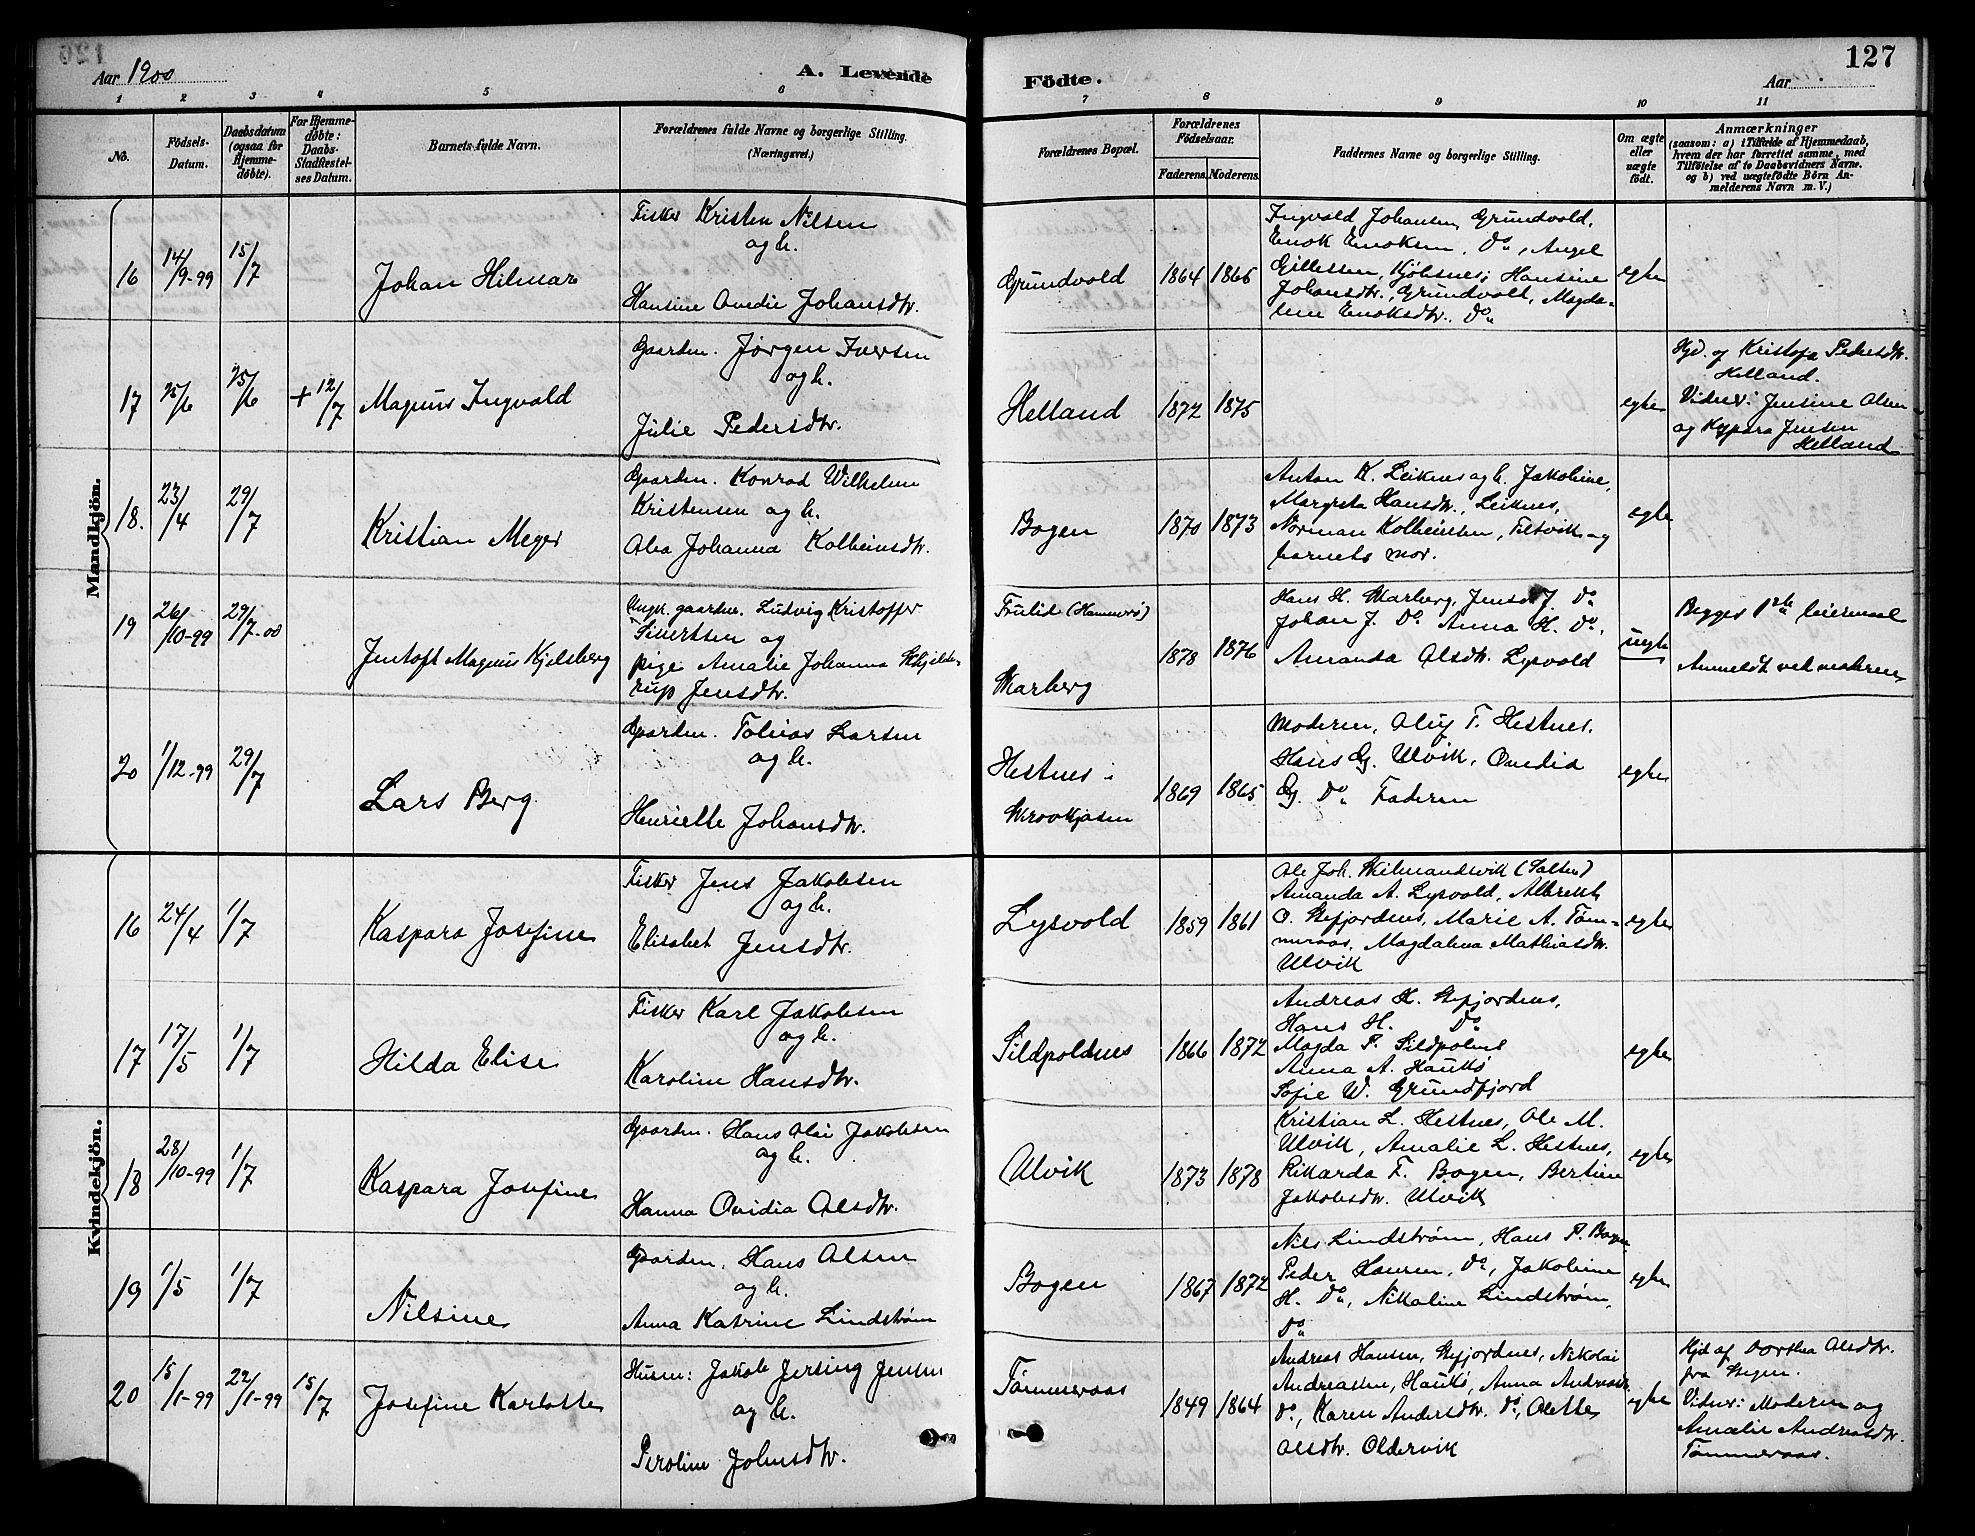 Aar 1900
A. Levende
Födte.
Aar
127
1 2 3 4 5 6 7 8 9 10 11
No.
Födsels-
Datum.
Daabsdatum
(ogsaa for
Hjemme-
döbte).
For Hjemme-
döbte:
Daabs-
Stadfæstel-
ses Datum.
Barnets fulde Navn.
Forældrenes fulde Navne og borgerlige Stilling.
(Næringsvei.)
Forældrenes Bopæl.
Forældrenes
Födselsaar.
Faderens. Moderens.
Faddernes Navne og borgerlige Stilling.
Om ægte
eller
uægte
födt.
Anmærkninger
(saasom: a) i Tilfælde af Hjemmedaab,
hvem der har forrettet samme, med
Tilföielse af to Daabsvidners Navne.
og b) ved uægtefödte Börn An-
melderens Navn m. V.)
Mandkjön.
16
14/9-99
15/7
Johan Hilmar
Fisker Kristen Nilsen
og h.
Hansine Ovedie Johansdtr.
Grundvold
1864
1865
Ingvald Johansen Grundvold,
Enok Enoksen, Do, Angel
Gillessen, Kjöbsnes, Hansine
Johansdtr., Grundvold, Magda-
lene Enoksdtr. Do
egte
17
25/6
25/6
+ 12/7
Magnus Ingvald
Gaardm. Jørgen Iversen
og h.
Julie Pedersdtr.
Helland
1872
1875
egte
Hjd. af Kristofa Pedersdtr.
Helland.
Vidner: Jensine Olsen
og Kaspara Jensen
Helland
18.
23/4
29/7
Kristian Meyer
Gaardm. Konrad Wilhelm
Kristensen og h.
Olea Johanna Kolbeinsdtr.
Bogen
1870
1873
Anton K. Leiknes og h. Jakobine,
Margreta Hansdtr., Leiknes,
Norman Kolbeinsen, Tiltvik og
barnets mor.
egte
19
26/10-99
29/7-00
Jentoft Magnus Kjelsberg
Ungk. gaardm. Ludvig Kristoffer
Sivertsen og
pige Amalie Johanna Skjelde-
rup Jensdtr.
(Hammerø)
Skarberg
1878
1876
Hans H. Skarberg, Jens J. Do
Johan J. Do Anna H. Do,
Amanda Olsdtr. Lysvold
uegte
Begges 1ste leiermaal
Anmeldt ved moderen
20
1/12-99
29/7
Lars Berg
Gaardm. Tobias Larsen
og h.
Henriette Johansdtr.
Hestnes i
Skrovkjosen
1869
1865
Moderen, Oluf T. Hestnes,
Hans G. Ulvik, Ovedia
G. Do Faderen
egte
Kvindekjön.
16
24/4
1/7
Kaspara Josefine
Fisker Jens Jakobsen
og h.
Elisabet Jensdtr.
Lysvold
1859
1861
Ole Joh. (Salten)
Amanda A. Lysvold, Albrekt
O. Stefjordnes, Marie A. Töm-
meraas, Magdalena Mathiasdtr.
Ulvik
egte
17
17/5
1/7
Hilda Elise
Fisker Karl Jakobsen
og h.
Karoline Hansdtr.
Sildpoldnes
1866
1872
Andreas H. Stefjordnes,
Hans H. Do
Magda P. Sildpolnes
Anna A. Haukö
Sofie W. Grundfjord
egte
18
28/10-99
1/7
Kaspara Josefine
Gaardm. Hans Olai Jakobsen
og h.
Hanna Ovidia Olsdtr.
Ulvik
1873
1878
Kristian L. Hestnes, Ole M.
Ulvik, Amalie L. Hestnes,
Rikarda F. Bogen, Bertine
Jakobsdtr. Ulvik
egte
19
1/5
1/7
Nilsine
Gaardm. Hans Olsen
og h.
Anna Katrine Lindstrøm
Bogen
1867
1872
Nils Lindstrøm, Hans P. Bogen
Peder Hansen, Do, Jakobine
H. Do, Nikoline Lindstrøm,
Do
egte
20
15/1-99
22/1-99
15/7
Josefine Karlotte
Husm: Jakob Jersing Jensen
og h.
Peroline Johnsdtr.
Tömmeraas
1849
1864
Andreas Hansen, Stefjordnes, Nikolai
Andreassen, Haukö, Anna Andreasdr.
Do, Karen Andersdtr. Do, Olette
Olsdtr. Oldervik
egte
Hjd af Dorthea Olsdtr.
fra Bogen.
Vidner: Moderen og
Amalie Andreasdtr.
Tömmeraas.